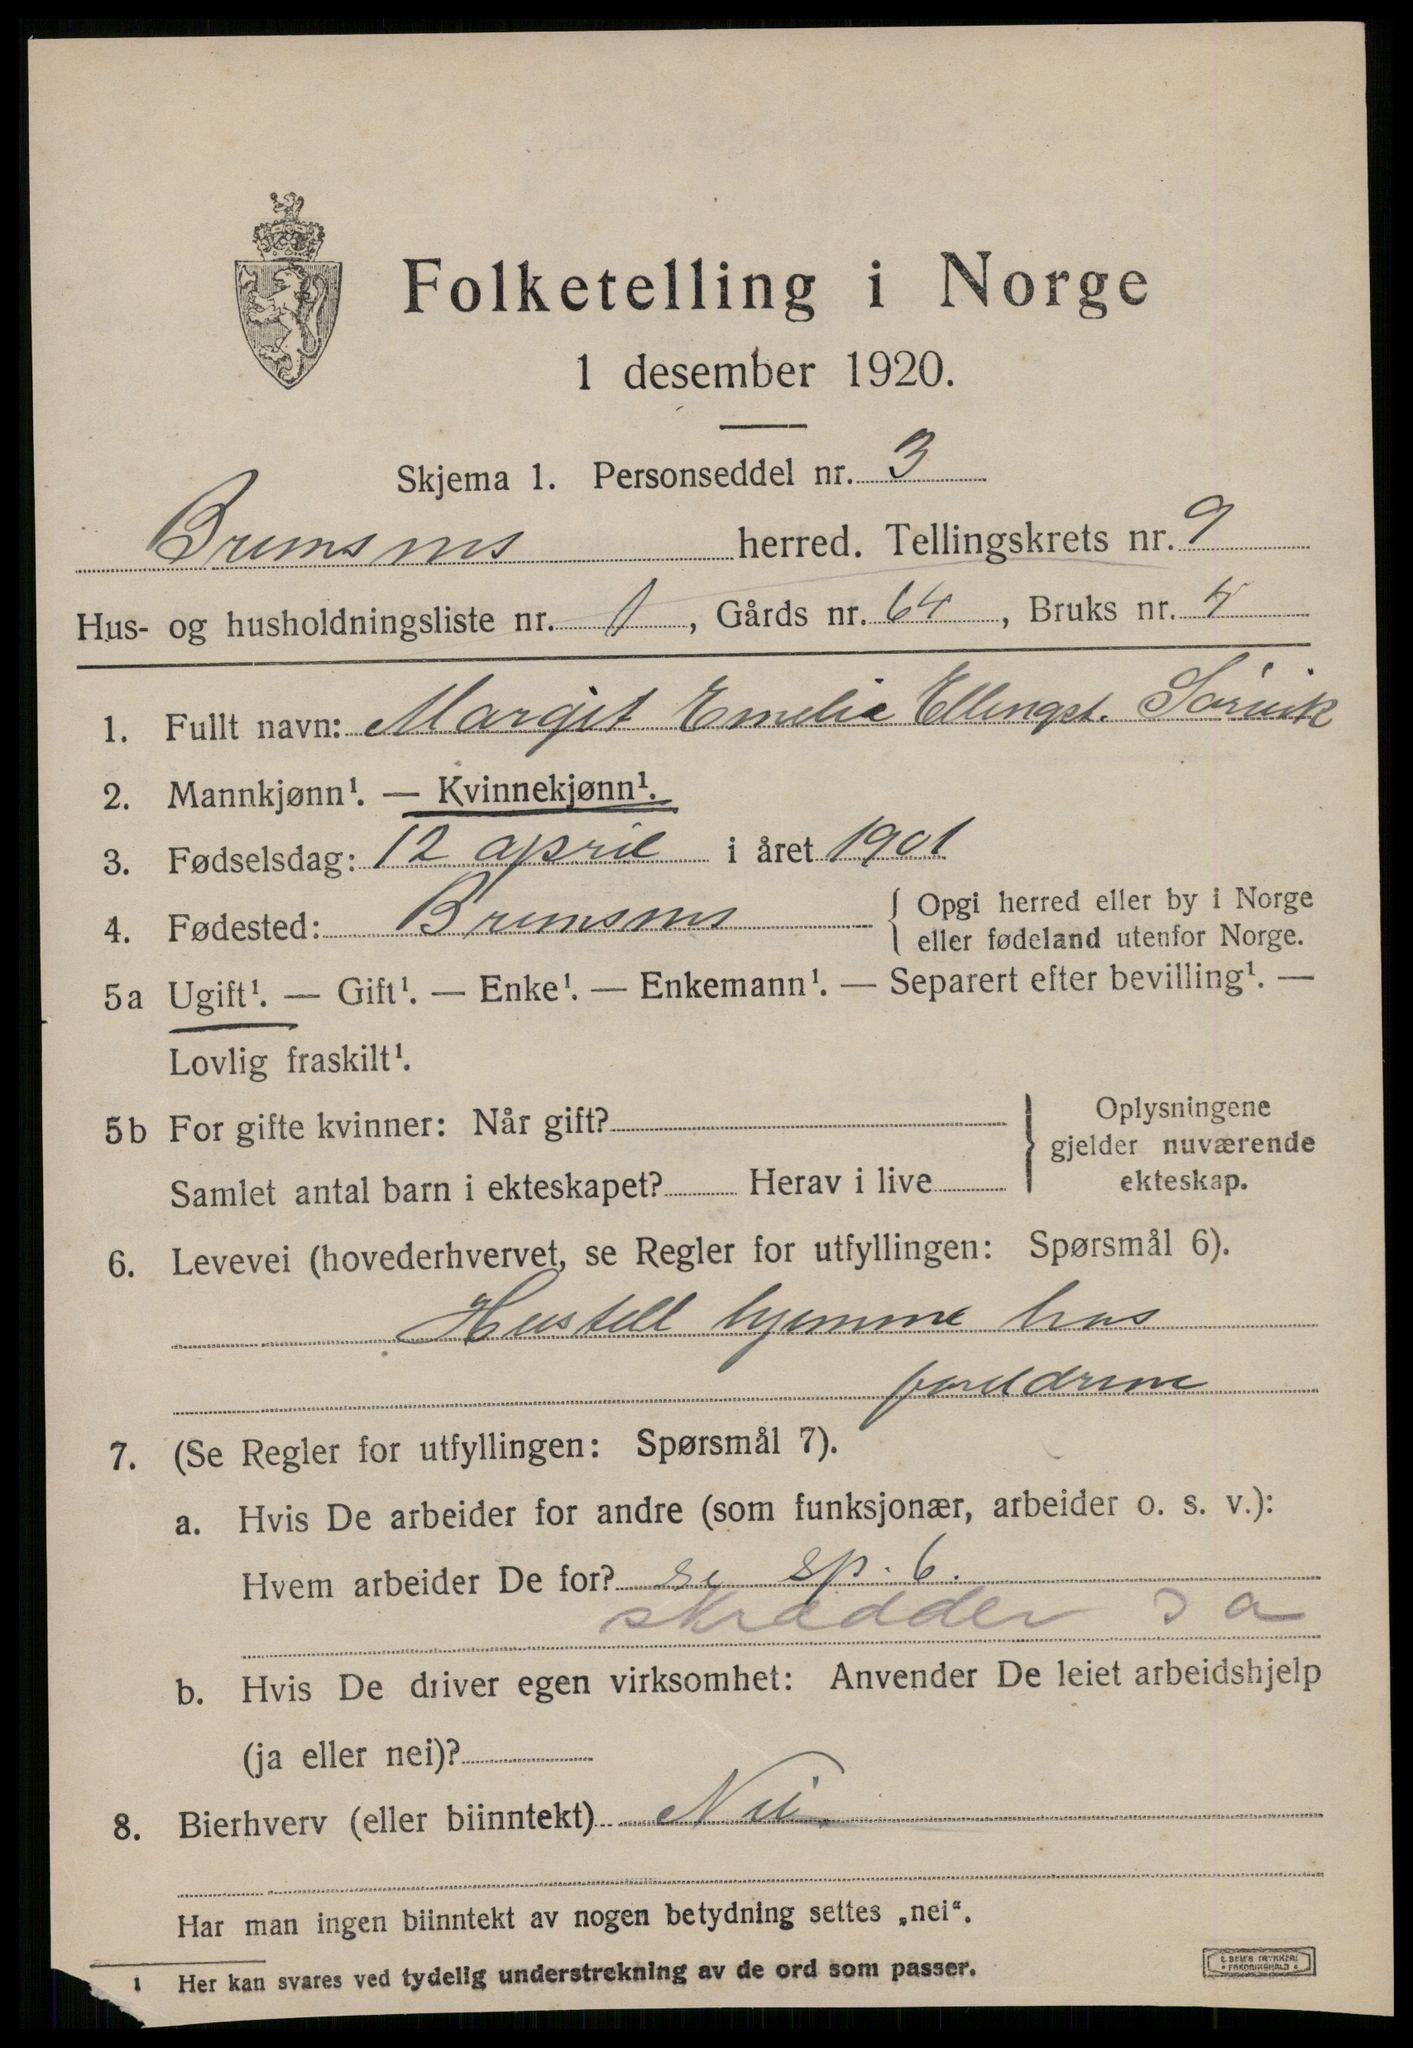 Folketelling i Norge
1 desember 1920.
Skjema 1. Personseddel nr. 3
Bremsnes herred. Tellingskrets nr. 9
Hus- og husholdningsliste nr. 1, Gårds nr. 64, Bruks nr. 4
1. Fullt navn: Margit Emelie Ellingst. Sørvik
2. Mannkjønn¹. — Kvinnekjønn¹.
3. Fødselsdag: 12 april i året 1901
4. Fødested: Bremsnes { Opgi herred eller by i Norge
eller fødeland utenfor Norge.
5a Ugift¹. — Gift¹. — Enke¹. — Enkemann¹. — Separert efter bevilling¹. —
Lovlig fraskilt¹.
5b For gifte kvinner: Når gift? } Oplysningene
gjelder nuværende
Samlet antal barn i ekteskapet? Herav i live ekteskap.
6. Levevei (hovederhvervet, se Regler for utfyllingen: Spørsmål 6).
Hustell hjemme hos
foreldrene
7. (Se Regler for utfyllingen: Spørsmål 7).
a. Hvis De arbeider for andre (som funksjonær, arbeider o. s. v.):
Hvem arbeider De for? se sp. 6.
skrædder a
b. Hvis De driver egen virksomhet: Anvender De leiet arbeidshjelp
(ja eller nei)?
8. Bierhverv (eller biinntekt) Nei.
Har man ingen biinntekt av nogen betydning settes „nei“.
1 Her kan svares ved tydelig understrekning av de ord som passer.